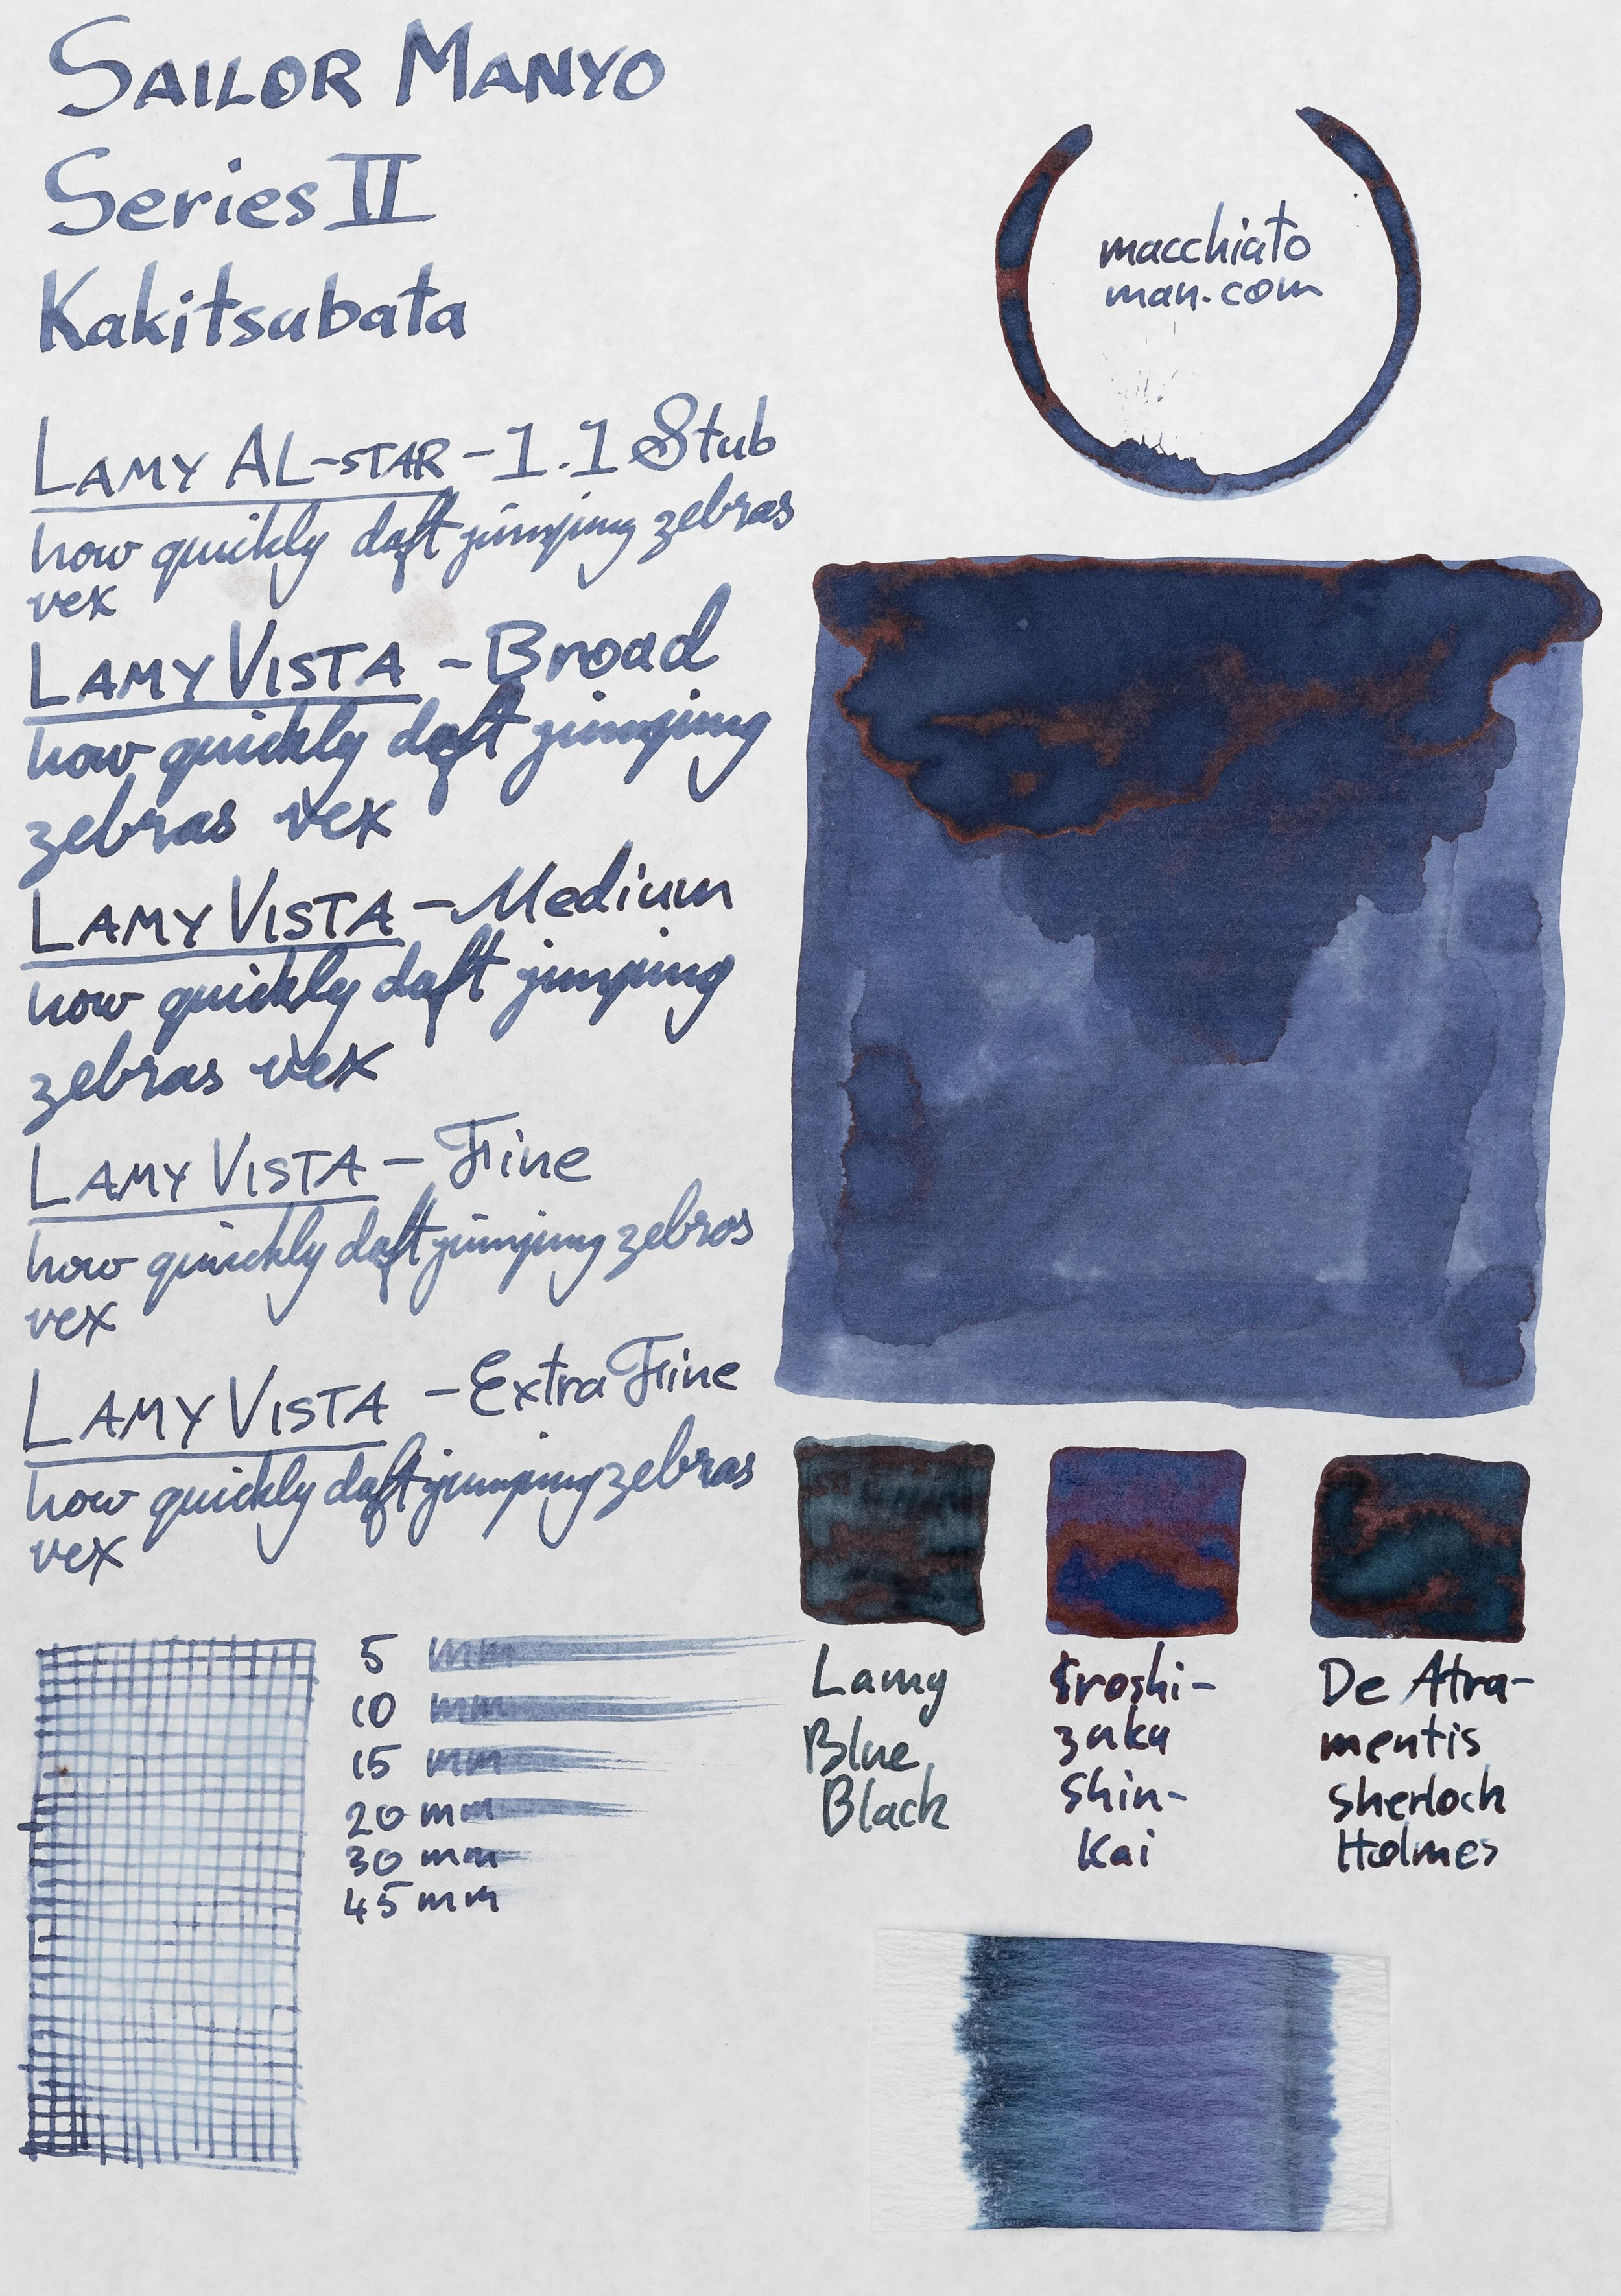 SAILOR MANYO
Series II
Kakitsubata
macchiato
man.com
LAMY AL-STAR - 1.1 Stub
how quickly daft jumping zebras
vex
LAMY VISTA - Broad
how quickly daft jumping
zebras vex
LAMY VISTA - Medium
how quickly daft jumping
zebras vex
LAMY VISTA - Fine
how quickly daft jumping zebras
vex
LAMY VISTA - Extra Fine
how quickly daft jumping zebras
vex
5 mm
10 mm
15 mm
20 mm
30 mm
45 mm
Lamy
Blue
Black
Iroshi-
zuku
Shin-
Kai
De Atra-
mentis
Sherlock
Holmes